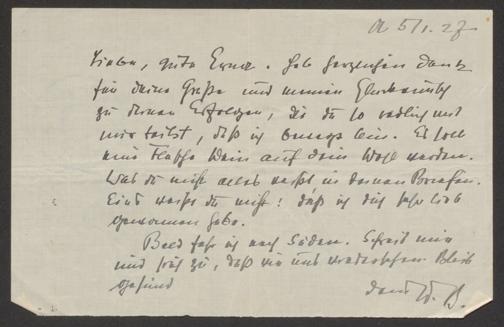 A 5/1. 27
Liebe, gute Erna. Hab herzlichen Dank
für deine Grüße und meinen Glückwunsch
zu deinen Erfolgen, die du so redlich mit
mir teilst, daß ich bin. Es soll
eine Flasche Wein auf dein Wohl werden.
Was du nicht alles weißt in deinen Briefen.
Eins weißt du nicht: daß ich dich sehr lieb
gewonnen habe.
Bald fahr ich nach Süden. Schreib mir
und sieh zu, daß wir uns Bleib
gesund
dein W. B.